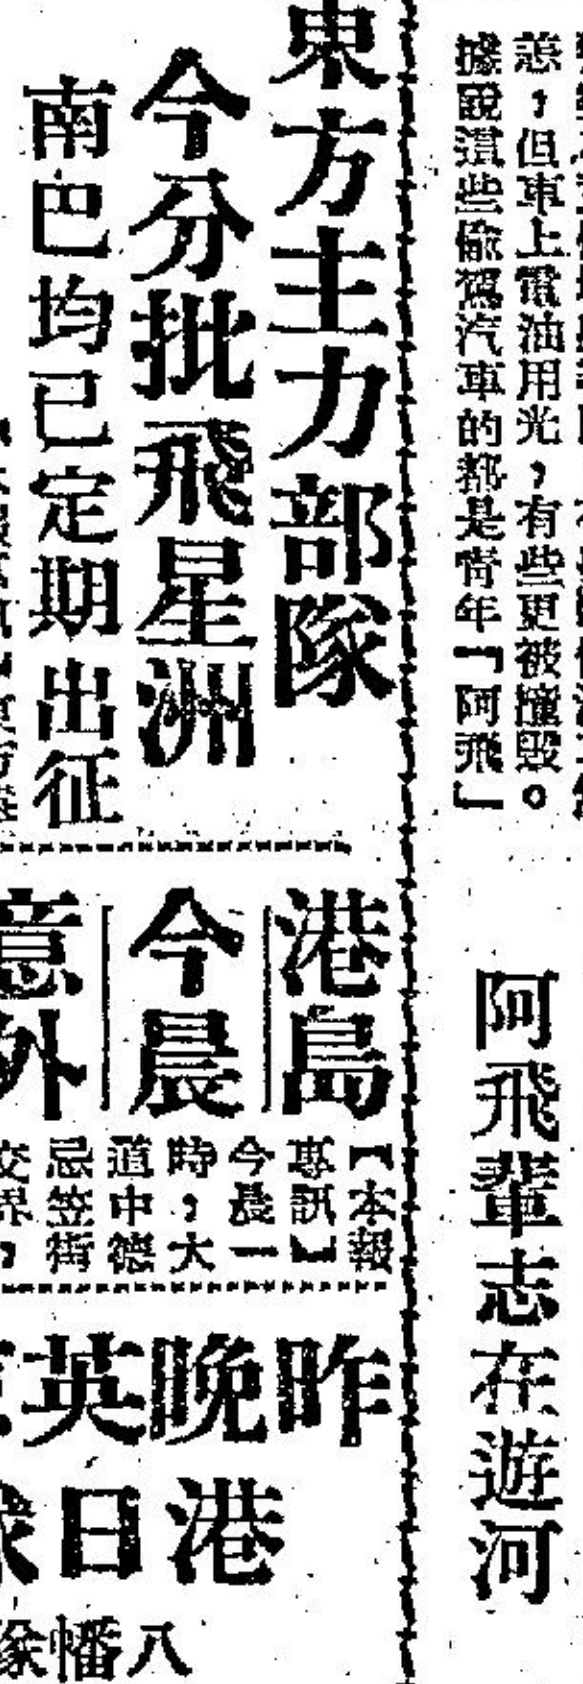 恙，但車上電油用光，有些更被撞毀。
據說這些偷駕汽車的都是青年「阿飛」
阿飛輩志在遊河
東方主力部隊
今分批飛星洲
南巴均已定期出征
港島
今晨
意外
【本報
專訊】
今晨一
時，大
道中德
忌笠街
交界，
昨晚英
港日
八幡